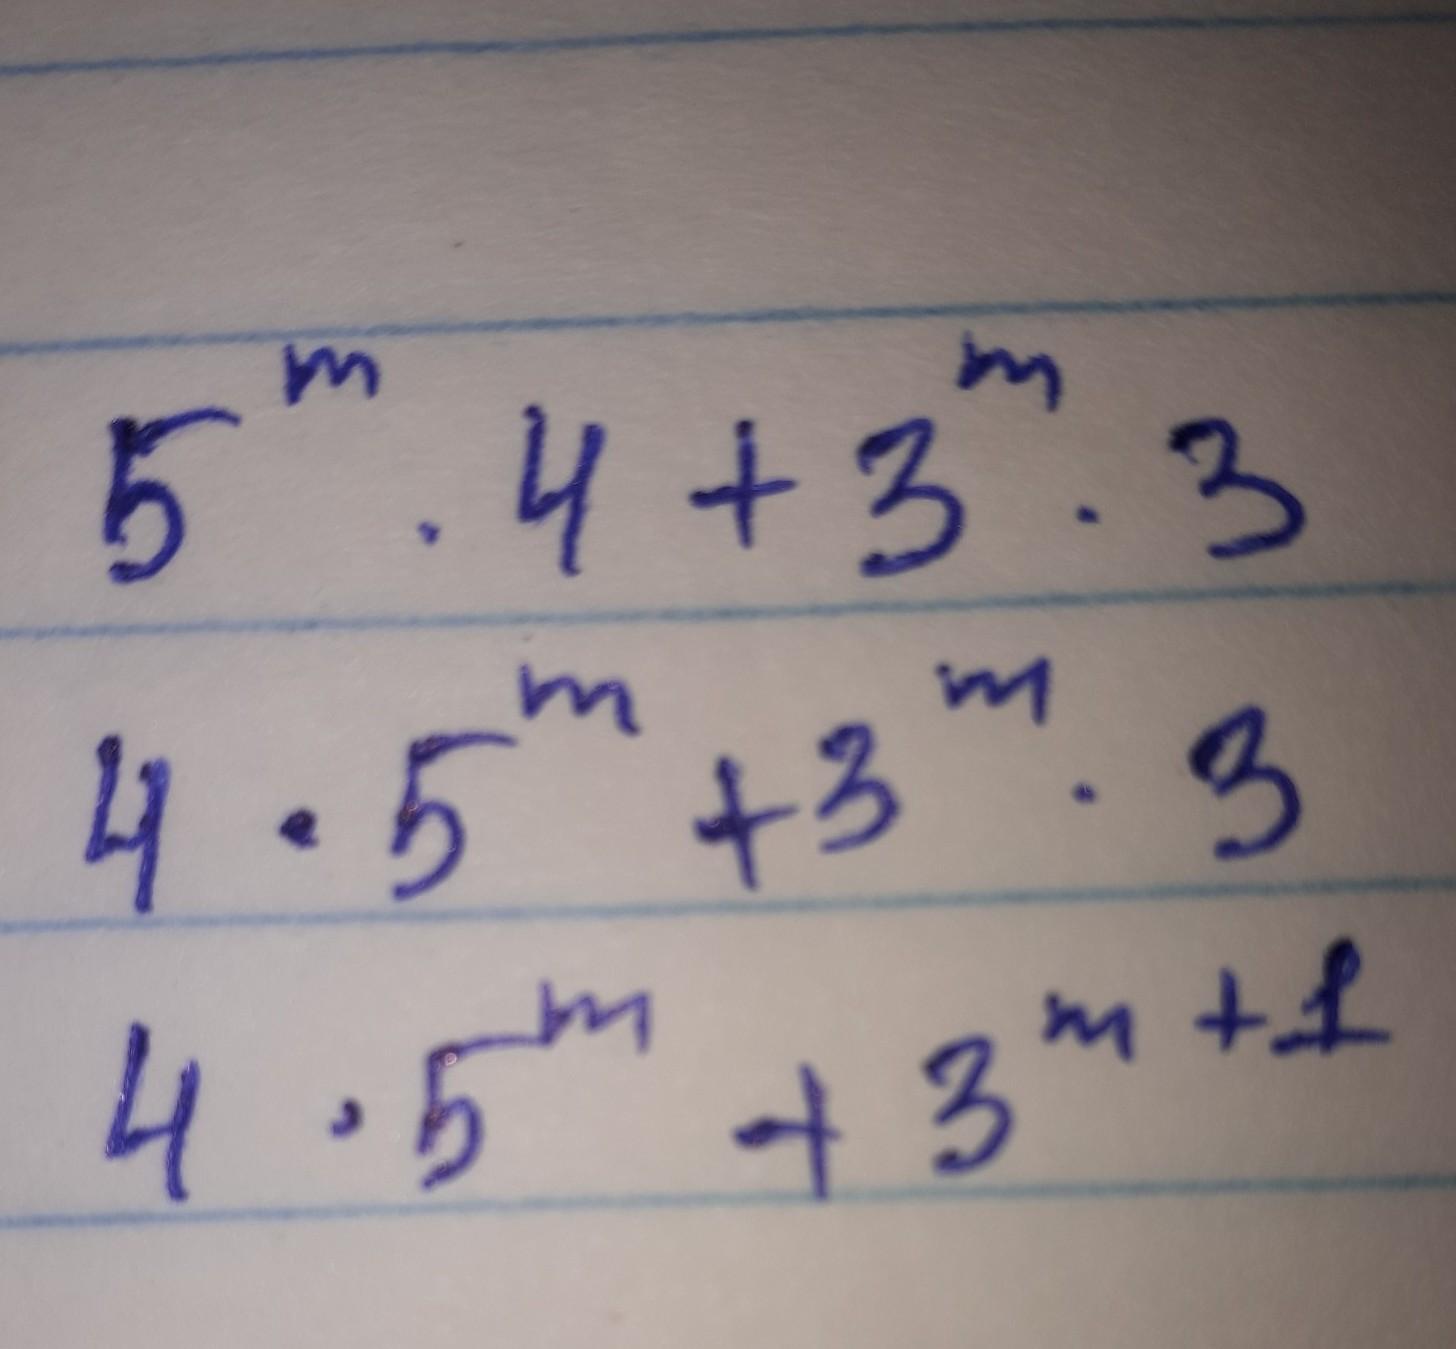 5^m . 4 + 3^m . 3
4 · 5^m + 3^m · 3
4 · 5^m + 3^{m+1}